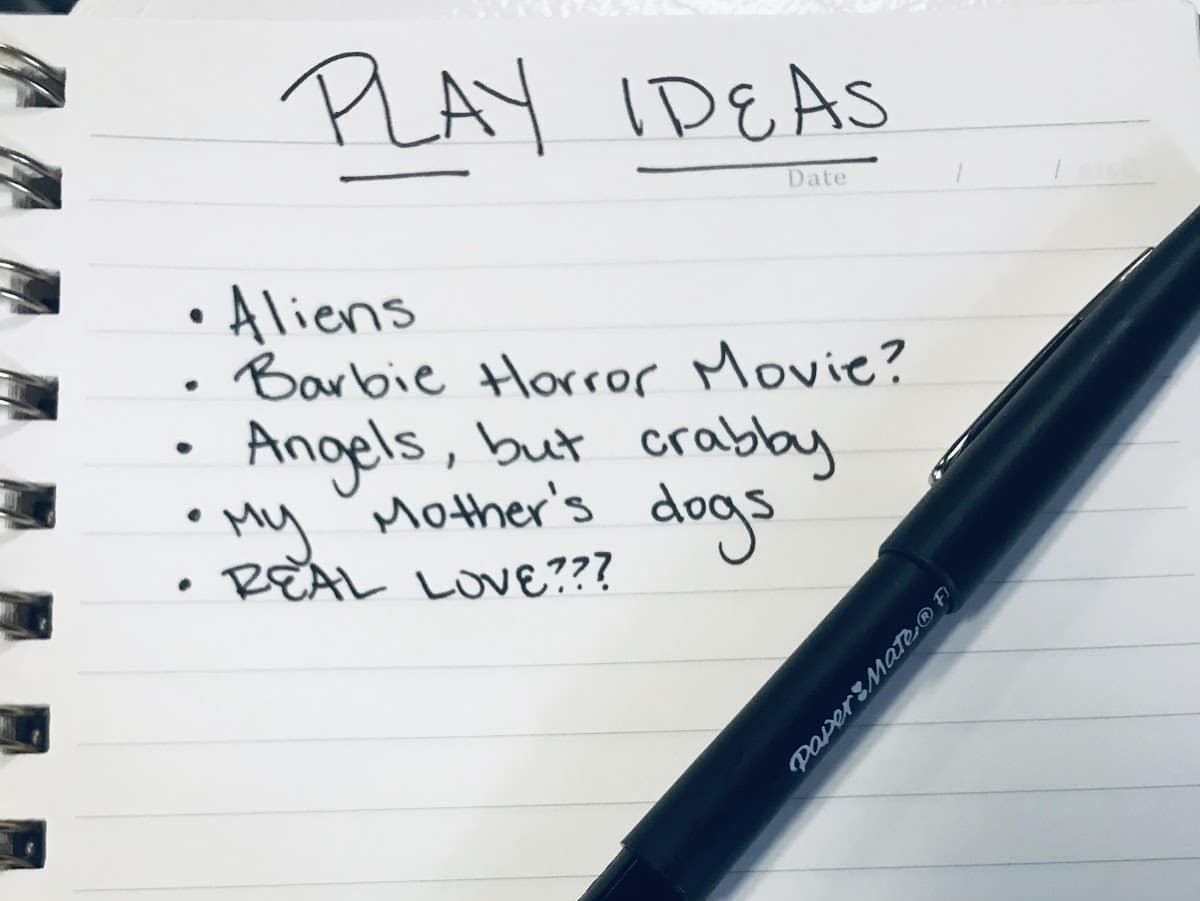 PLAY IDEAS
Date / /
• Aliens
• Barbie Horror Movie?
• Angels, but crabby
• My Mother's dogs
• REAL LOVE???
Paper Mate® F